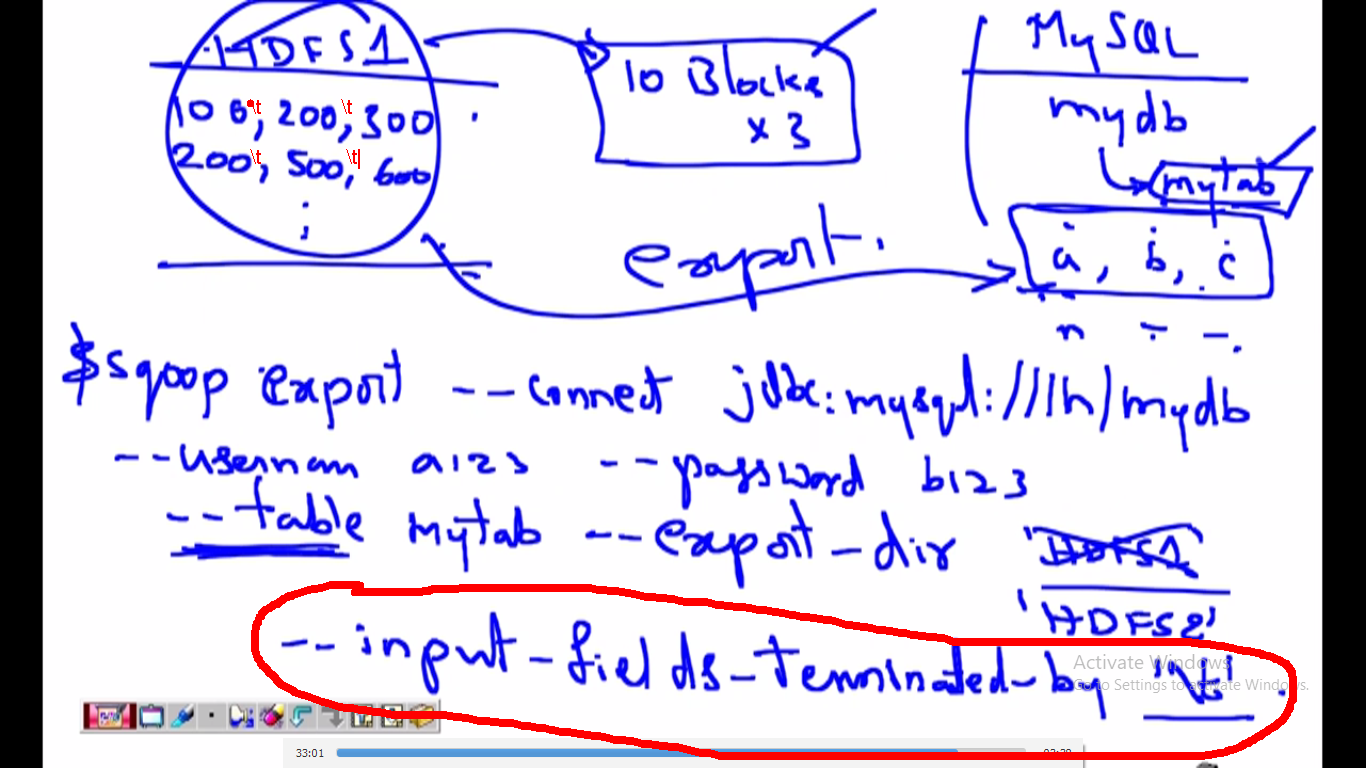 HDFS1
100\t, 200\t, 300
200\t, 500\t, 600
10 Blocks
x 3
MySQL
mydb
mytab
a, b, c
export.
$sqoop export --connect jdbc:mysql://lh/mydb
--usernam a123 --password b123
--table mytab --export-dir 'HDFS1'
'HDFS2'
--input-fields-terminated-by '\t'
Activate Windows
Go to Settings to activate Windows.
33:01